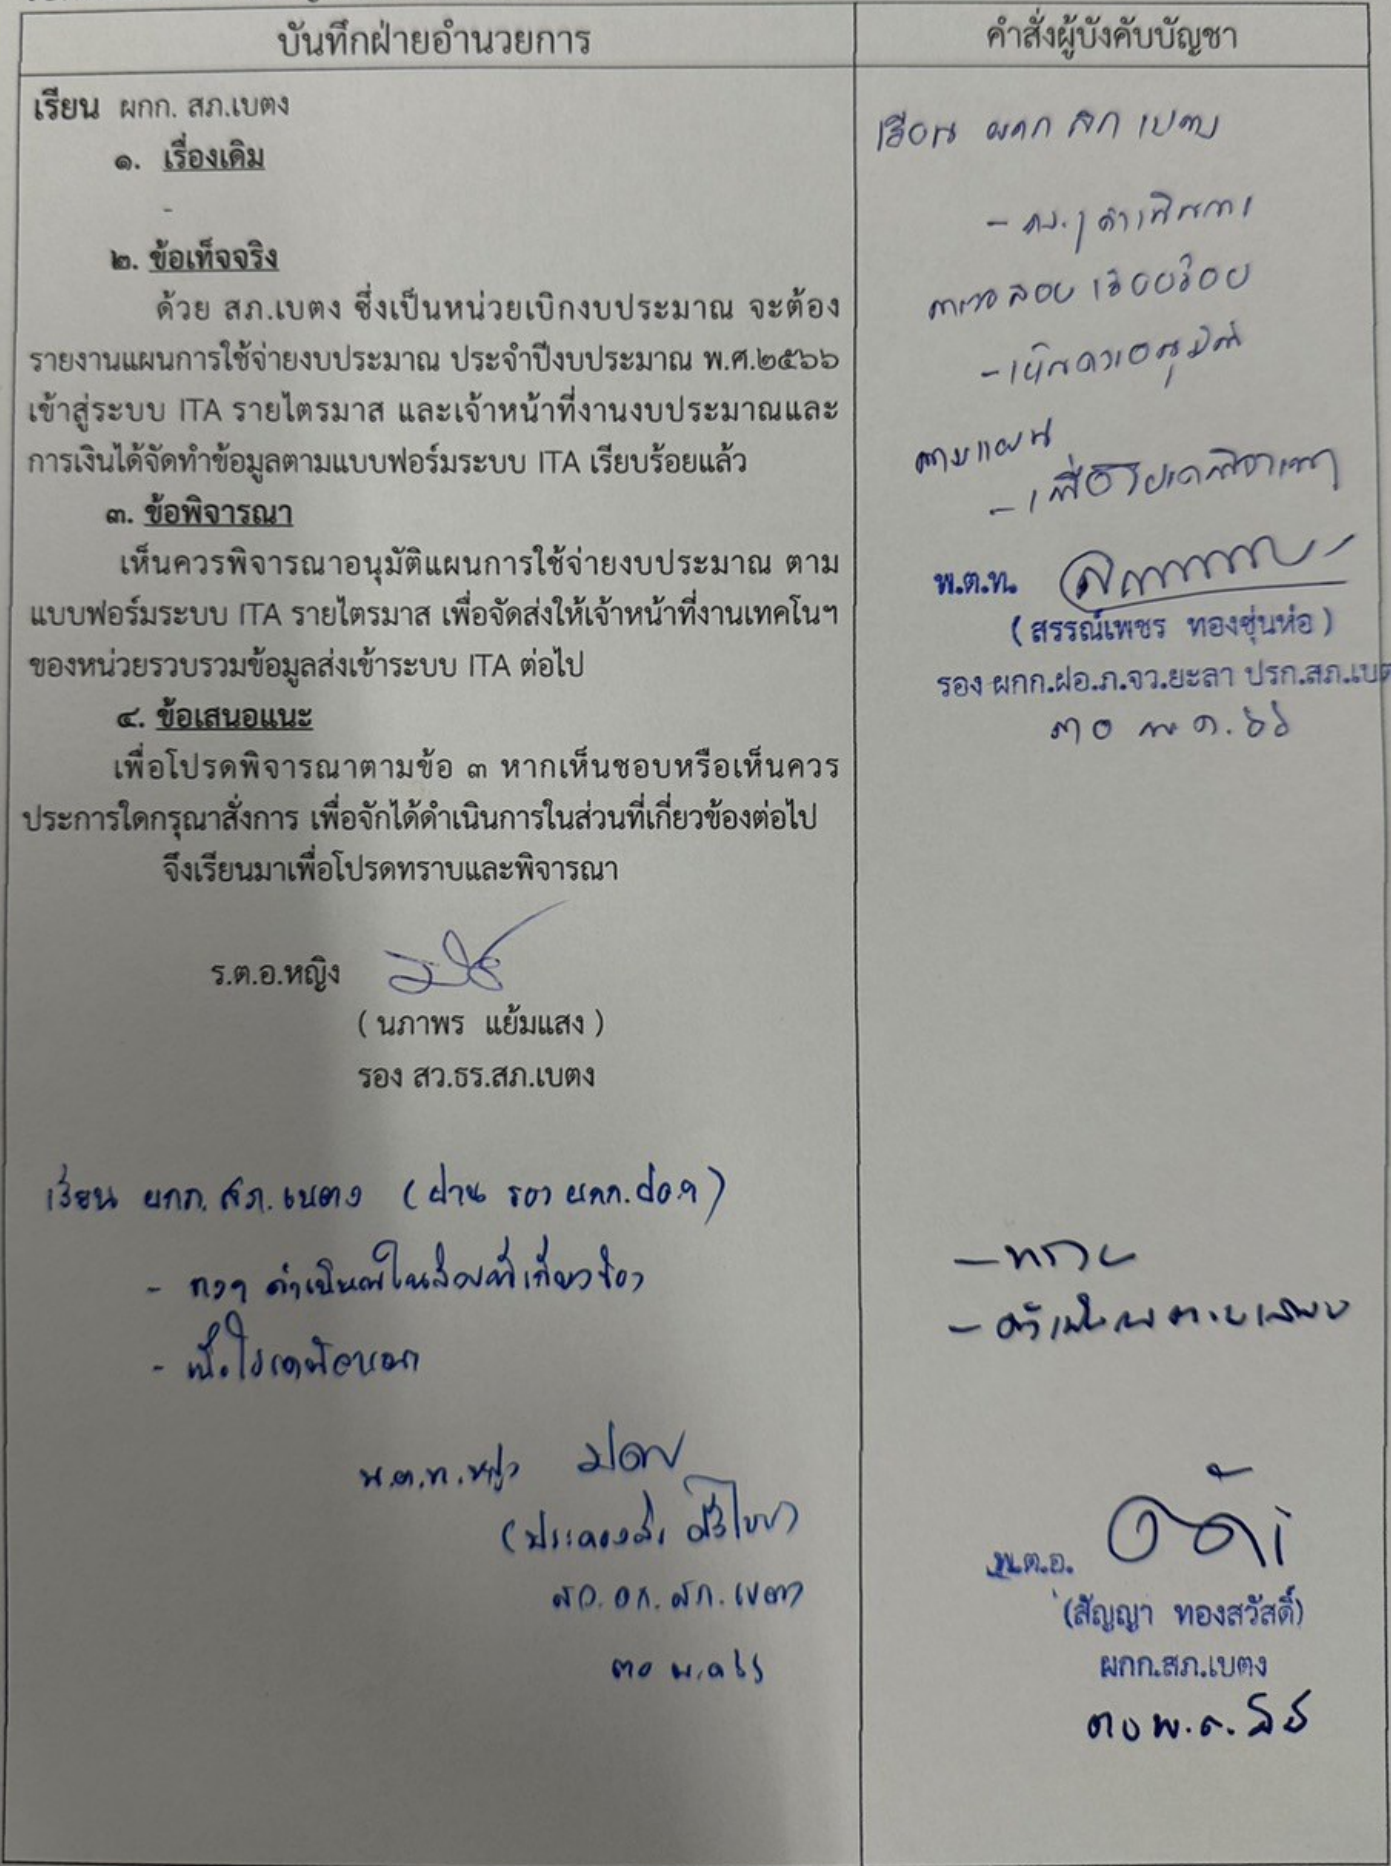 บันทึกฝ่ายอำนวยการ
เรียน ผกก. สภ.เบตง
๑. เรื่องเดิม
-
๒. ข้อเท็จจริง
ด้วย สภ.เบตง ซึ่งเป็นหน่วยเบิกงบประมาณ จะต้อง
รายงานแผนการใช้จ่ายงบประมาณ ประจำปีงบประมาณ พ.ศ.๒๕๖๖
เข้าสู่ระบบ ITA รายไตรมาส และเจ้าหน้าที่งานงบประมาณและ
การเงินได้จัดทำข้อมูลตามแบบฟอร์มระบบ ITA เรียบร้อยแล้ว
๓. ข้อพิจารณา
เห็นควรพิจารณาอนุมัติแผนการใช้จ่ายงบประมาณ ตาม
แบบฟอร์มระบบ ITA รายไตรมาส เพื่อจัดส่งให้เจ้าหน้าที่งานเทคโนฯ
ของหน่วยรวบรวมข้อมูลส่งเข้าระบบ ITA ต่อไป
๔. ข้อเสนอแนะ
เพื่อโปรดพิจารณาตามข้อ ๓ หากเห็นชอบหรือเห็นควร
ประการใดกรุณาสั่งการ เพื่อจักได้ดำเนินการในส่วนที่เกี่ยวข้องต่อไป
จึงเรียนมาเพื่อโปรดทราบและพิจารณา
ร.ต.อ.หญิง
( นภาพร แย้มแสง )
รอง สว.ธร.สภ.เบตง
เรียน ผกก. สภ.เบตง (ผ่าน รอง ผกก.ฝอ.ฯ)
- กงฯ ดำเนินการในส่วนที่เกี่ยวข้อง
- เพื่อโปรดพิจารณา
พ.ต.ท.หญิง
สว.อก.สภ.เบตง
๓๐ พ.ค.๖๖
คำสั่งผู้บังคับบัญชา
เรียน ผกก สภ เบตง
ตรวจสอบเรียบร้อย
- เห็นควรอนุมัติ
ตามแผน
- เพื่อโปรดพิจารณา
พ.ต.ท.
( สรรณ์เพชร ทองชุ่นห่อ )
รอง ผกก.ฝอ.ภ.จว.ยะลา ปรก.สภ.เบต
๓๐ พ.ค.๖๖
- ทราบ
- ดำเนินการตามเสนอ
พ.ต.อ.
(สัญญา ทองสวัสดิ์)
ผกก.สภ.เบตง
๓๐ พ.ค. ๖๖